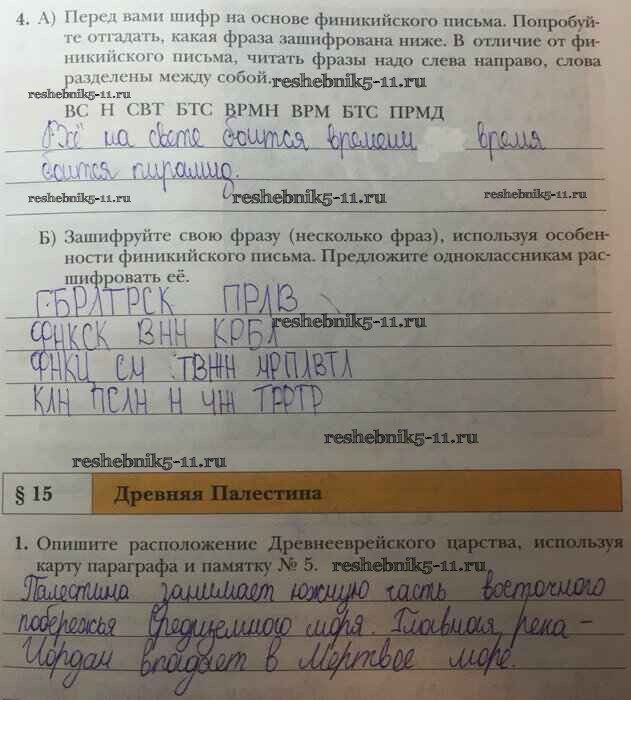 4. А) Перед вами шифр на основе финикийского письма. Попробуй-
те отгадать, какая фраза зашифрована ниже. В отличие от фи-
никийского письма, читать фразы надо слева направо, слова
разделены между собой. reshebnik5-11.ru
reshebnik5-11.ru
ВС Н СВТ БТС ВРМН ВРМ БТС ПРМД
Всё на свете боится времени время
боится пирамид.
reshebnik5-11.ru reshebnik5-11.ru reshebnik5-11.ru
Б) Зашифруйте свою фразу (несколько фраз), используя особен-
ности финикийского письма. Предложите одноклассникам рас-
шифровать её.
ГБРЛТРСК ПРЛВ
reshebnik5-11.ru
ФНКСК ВНН КРБЛ
ФНКЦ СМ ТВЖН МРПЛВТЛ
КЛН ПСЛН Н ЧЖ ТРРТР
reshebnik5-11.ru
reshebnik5-11.ru
§ 15 Древняя Палестина
1. Опишите расположение Древнееврейского царства, используя
карту параграфа и памятку № 5. reshebnik5-11.ru
Палестина занимает южную часть восточного
побережья Средиземного моря. Главная река –
Иордан впадает в Мёртвое море.